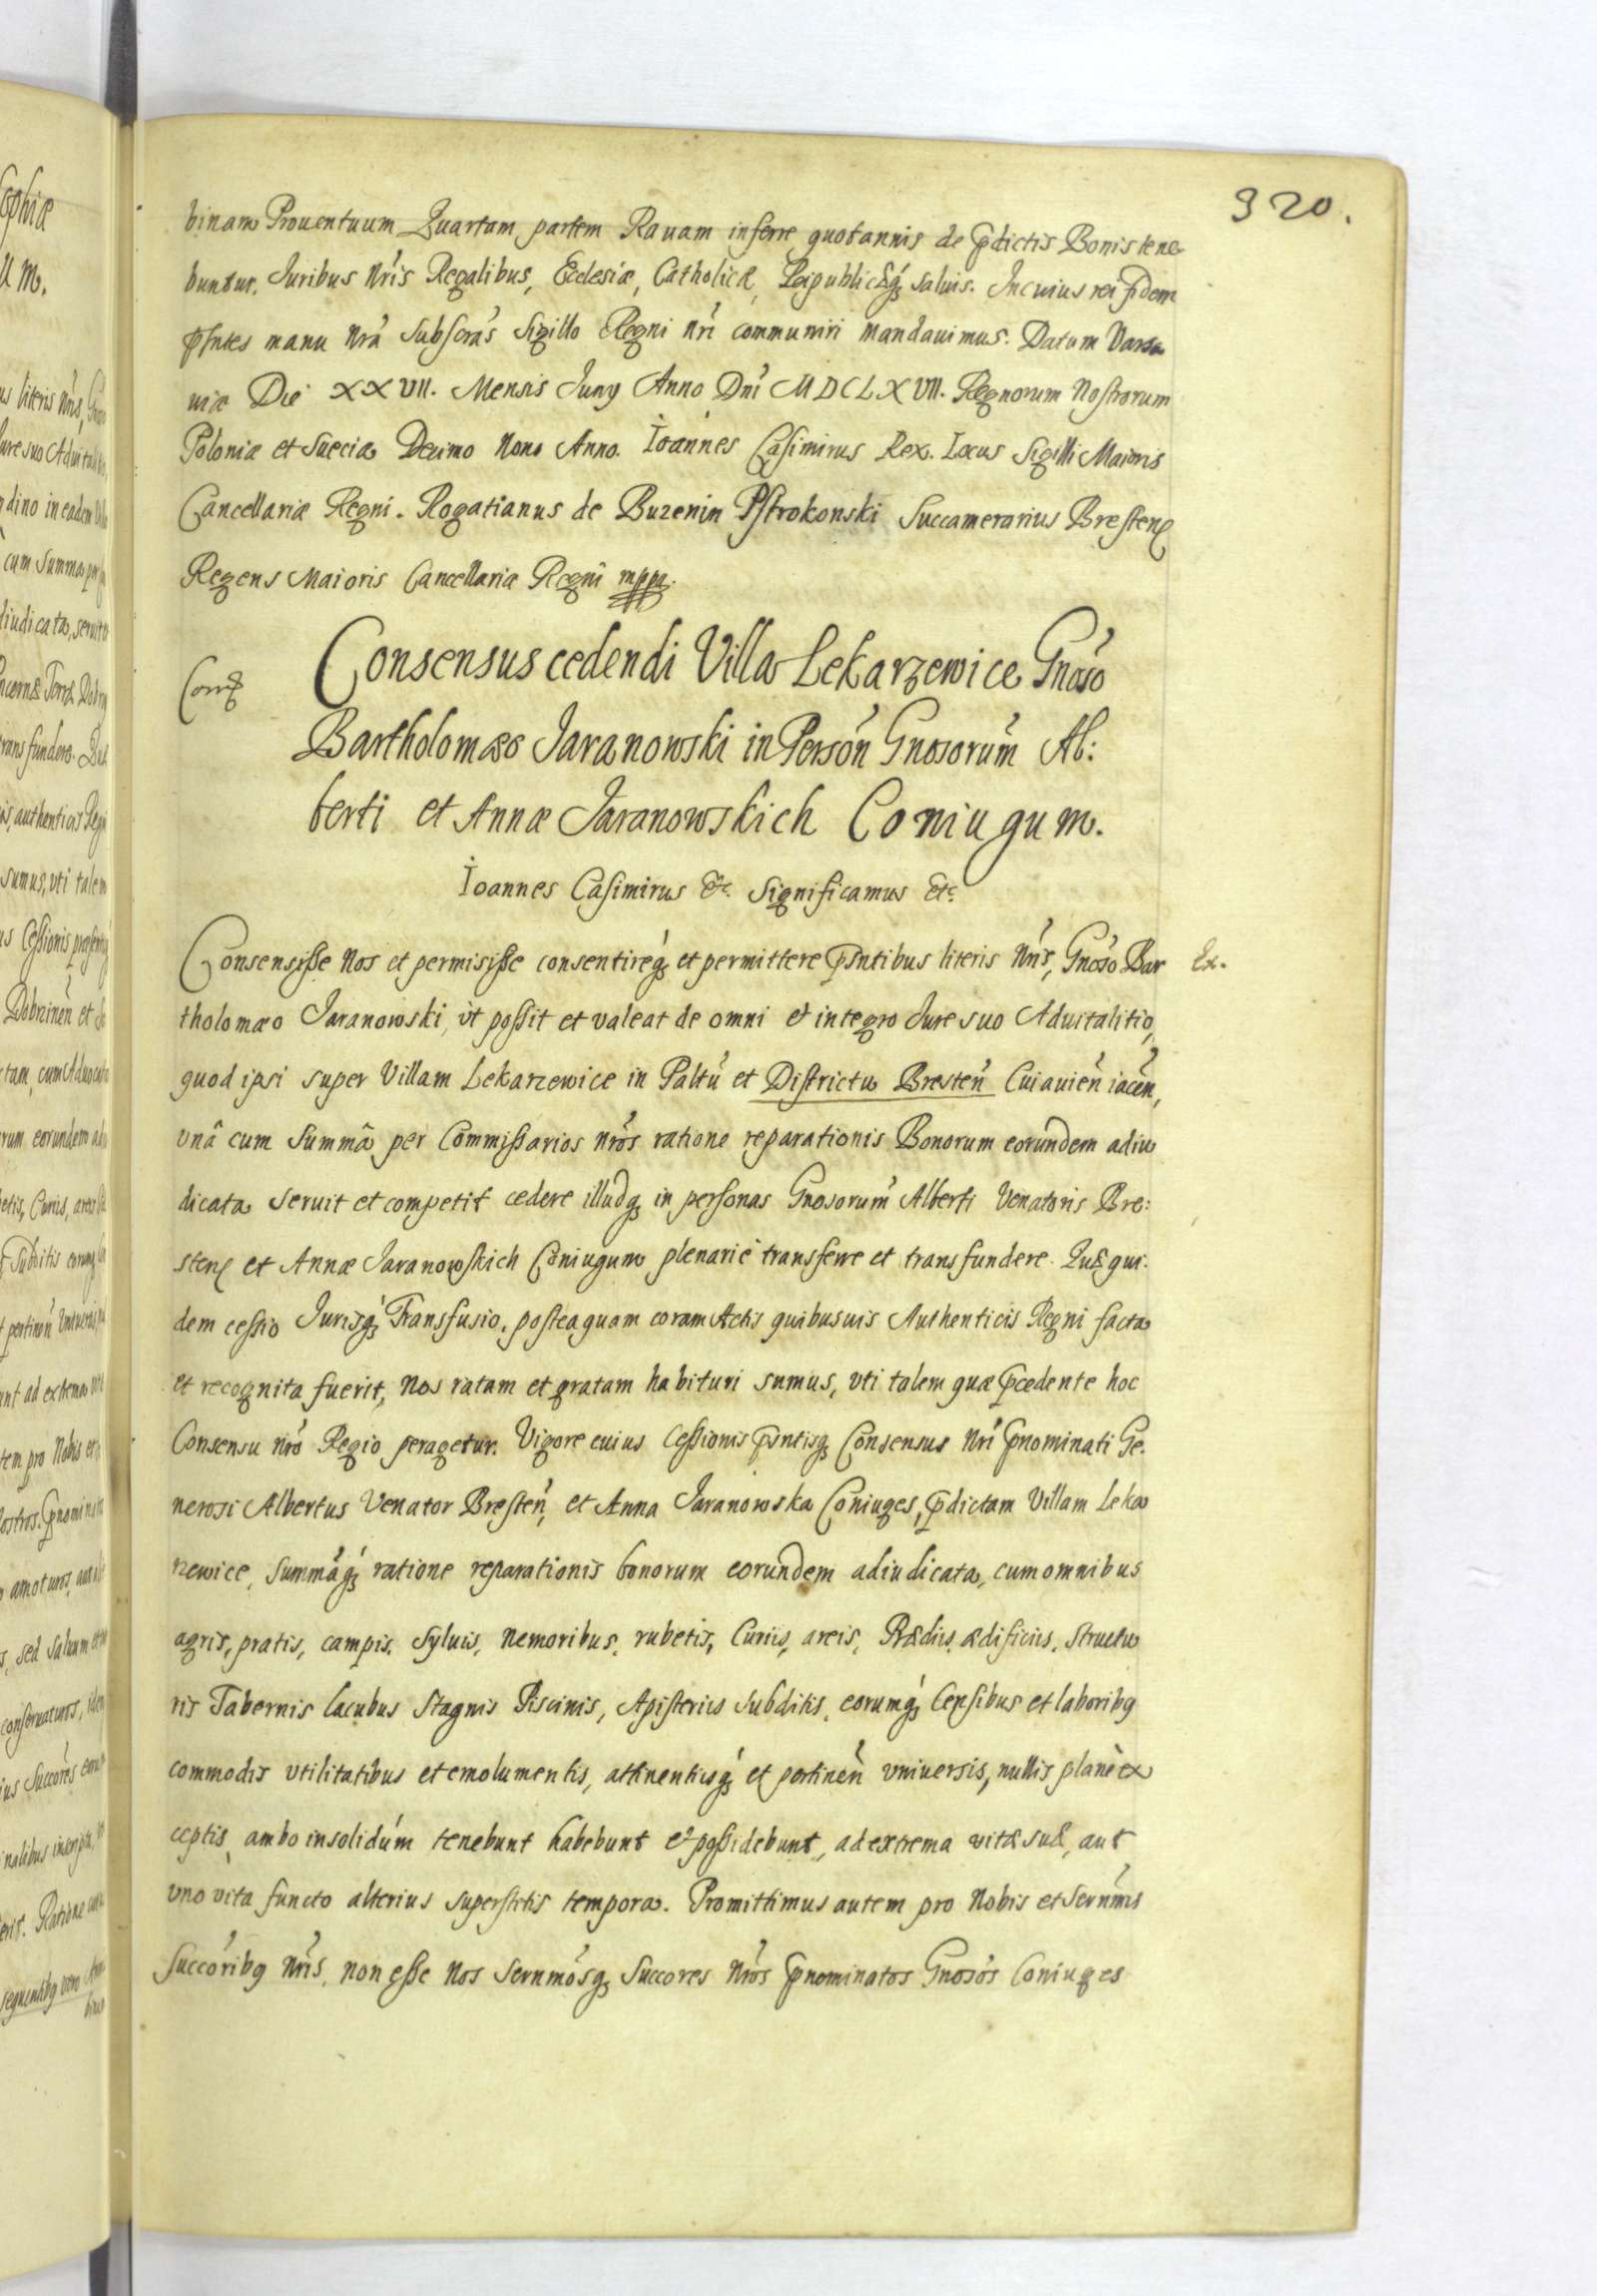 320.
binam Prouentuum Quartam partem Rauam inferre quotannis de p̄dictis Bonis tene-
buntur. Iuribus nr̃is Regalibus, Ecclesiæ, Catholicæ, Reipublicæq; saluis. In cuius rei fidem
p̄sntes manu nr̃a subscr̃as Sigillo Regni nr̃i communiri mandauimus. Datum Varsa
uiæ Die XXVII. Mensis Iuny Anno Dn̄i MDCLXVII. Regnorum Nostrorum
Poloniæ et Sueciæ Decimo Nono Anno. Ioannes Casimirus Rex. Locus Sigilli Maioris
Cancellariæ Regni. Rogatianus de Buzenin Pstrokonski Succamerarius Bresten̄
Regens Maioris Cancellariæ Regni mppa.
Consensus cedendi Villa Lekarzewice Gnoso
Bartholomæo Jaranowski in Person̄ Gnosorum Al:
berti et Annæ Jaranowskich Coniugum.
Ioannes Casimirus &c. Significamus etc
Consensisse Nos et permisisse consentireq; et permittere p̄sntibus literis Nr̃is, Gnoso Bar
Ex.
tholomæo Jaranowski, vt possit et valeat de omni et integro Iure suo Aduitalitio,
quod ipsi super Villam Lekarzewice in Paltũ et Districtu Bresten̄ Cuiauien̄ iacen̄,
vnâ cum Summâ per Commissarios nr̃os ratione reparationis Bonorum eorundem adiu
dicata seruit et competit cedere illudq; in personas Gnosorum Alberti Venatoris Bre:
sten̄ et Annæ Jaranowskich Coniugum plenariè transferre et transfundere. Quæ qui:
dem cessio Iurisq; Transfusio, posteaquam coram Actis quibusuis Authenticis Regni facta
et recognita fuerit, Nos ratam et gratam habituri sumus, vti talem quæ p̄cedente hoc
Consensu nr̃o Regio peragetur. Vigore cuius Cessionis p̄sntisq; Consensus Nr̃i p̄nominati Ge.
nerosi Albertus Venator Bresten̄, et Anna Jaranowska Coniuges, p̄dictam Villam Leka
rzewice, Summãq; ratione reparationis bonorum eorundem adiudicata, cum omnibus
agris, pratis, campis, Syluis, nemoribus, rubetis, Curiis, areis, Prædiis, ædificiis, Structu
ris Tabernis lacubus Stagnis Piscinis, Apisteriis Subditis, eorumq; Censibus et laborib9
commodis vtilitatibus et emolumentis, attinentiisq; et pertinen̄ vniuersis, nullis planè ex
ceptis, ambo insolidúm tenebunt habebunt et possidebunt, ad extrema vitæ suæ, aut
vno vita functo alterius superstitis tempora. Promittimus autem pro Nobis et Sern̄mis
Succorib9 Nr̃is, non esse Nos Sernmosq; Succores Nr̃os p̄nominatos Gnosos Coniuges